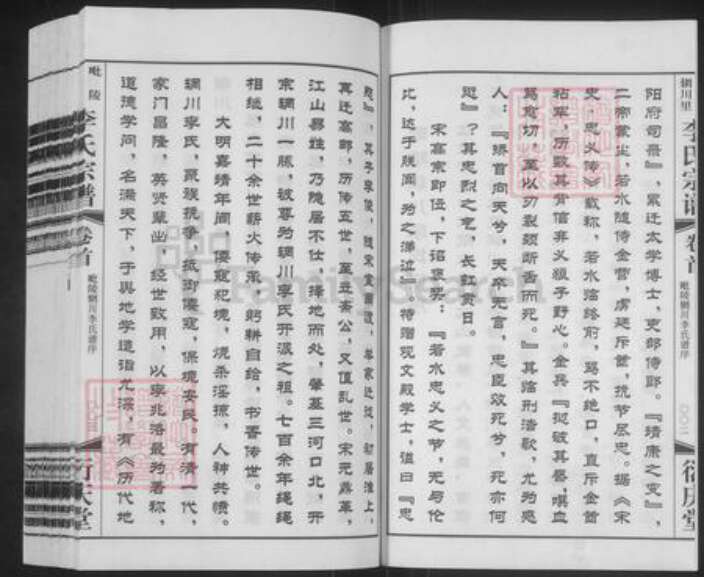 辋川里 李氏宗谱 卷首 毗陵辋川李氏谱序 〇〇三 衍庆堂
阳府司录』，累迁太学博士，吏部侍郎。『靖康之变』，
二帝蒙尘，若水随侍金营，虏廷斥酋，抗节尽忠。据《宋
史·忠义传》载称，若水临终前，骂不绝口，直斥金酋
粘罕，历数其背信弃义狼子野心。金兵『挝破其唇，噀血
骂愈切，至以刃裂颈断舌而死。』其临刑浩歌，尤为感
人：『矫首问天兮，天卒无言，忠臣效死兮，死亦何
愆』？其忠烈之气，长虹贯日。
宋高宗即位，下诏褒奖：『若水忠义之节，无与伦
比，达于朕闻，为之涕泣』，特赠观文殿学士，谥曰『忠
愍』，其子
再迁高邮，历传五世，至 公，又值乱世。宋元鼎革，
江山易姓，乃隐居不仕，择地而处，肇基三河口北，开
宗辋川一脉，被尊为辋川李氏开派之祖。七百余年绳绳
相继，二十余世薪火传承，躬耕自给，书香传世。
大明嘉靖年间，倭寇犯境，烧杀淫掠，人神共愤。
辋川李氏，聚族抗争，抵御倭寇，保境安民。有清一代，
家门昌隆，英贤辈出，经世致用，以李兆洛最为著称，
道德学问，名满天下，于舆地学造诣尤深，有《历代地
毗陵 李氏宗谱 卷首 毗陵辋川李氏谱序 衍庆堂
FamilySearch